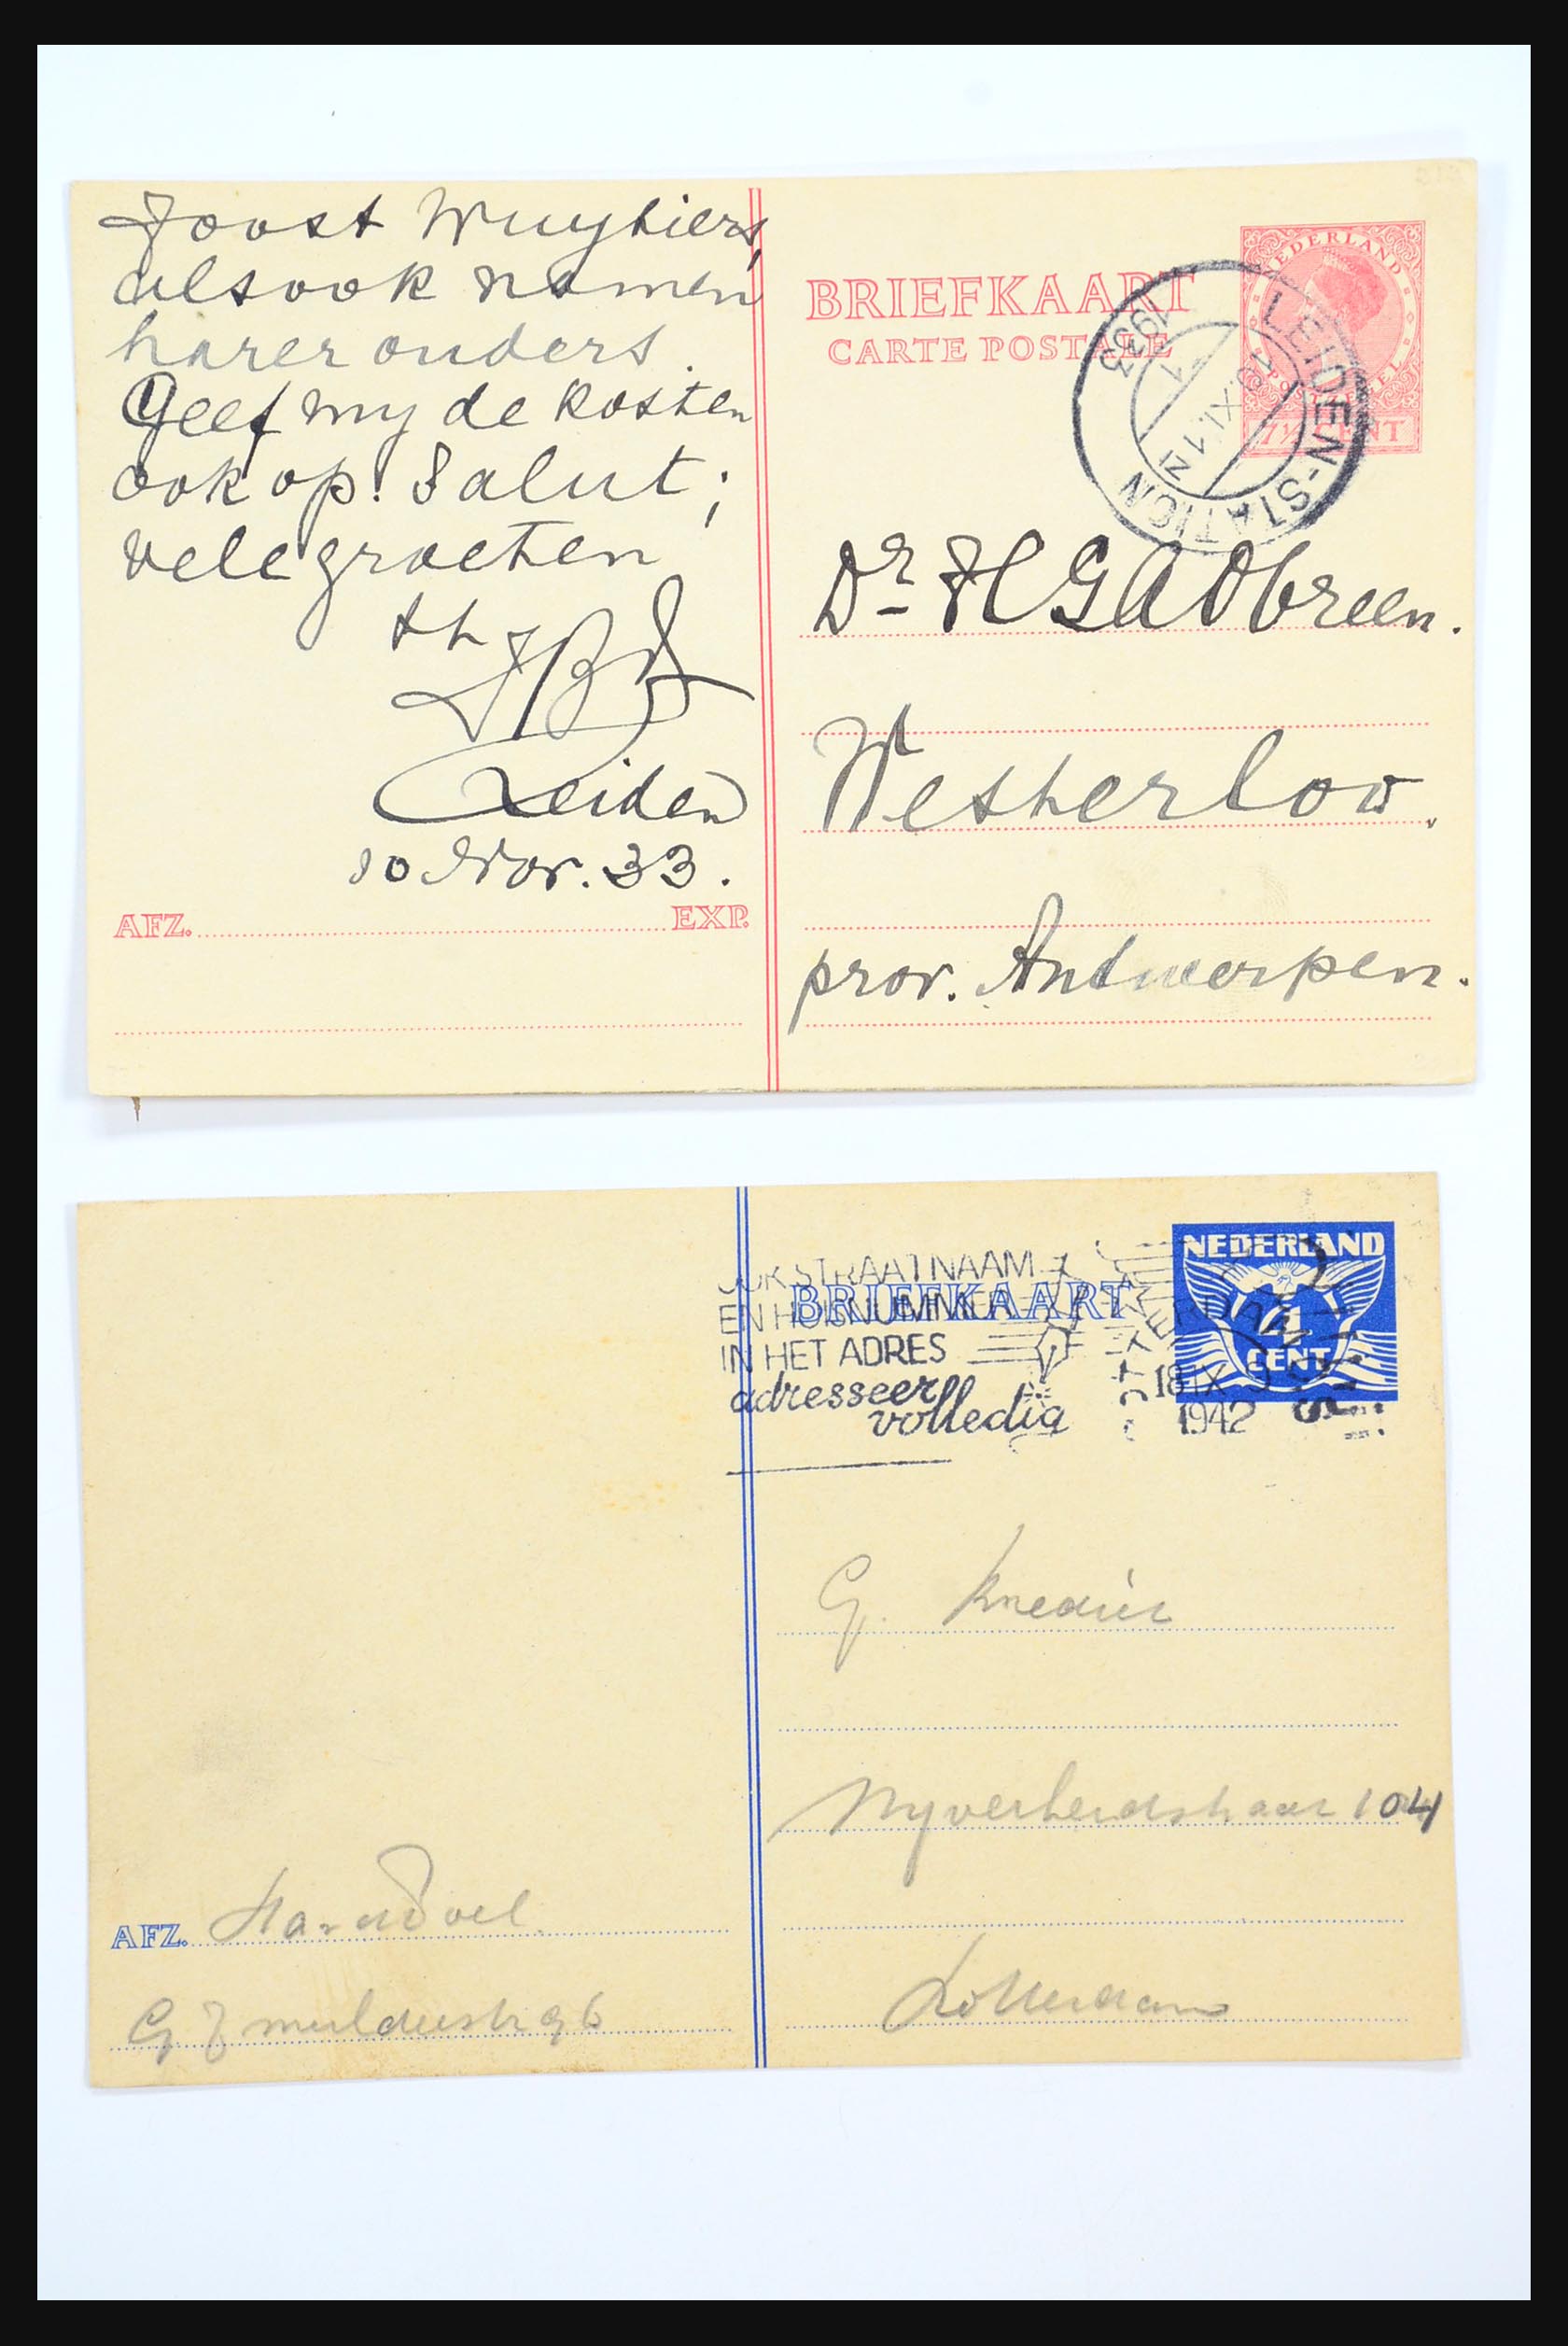 Joost Wuytiers,
alsook namen
harer ouders.
Geef my de kosten
ook op! Salut;
vele groeten
Leiden
10 Nov. 33.
AFZ. EXP.
BRIEFKAART
CARTE POSTALE
NEDERLAND
7½ CENT
LEIDEN-STATION
1933
Dr HGA Obreen.
Westerloo.
prov. Antwerpen.
OOK STRAATNAAM
EN HUISNUMMER
IN HET ADRES
adresseer
volledig
BRIEFKAART
NEDERLAND
4
CENT
ROTTERDAM
18 IX
1942
G.
Nyverheidstraat 104
Rotterdam
AFZ.
G J mulderstr 96